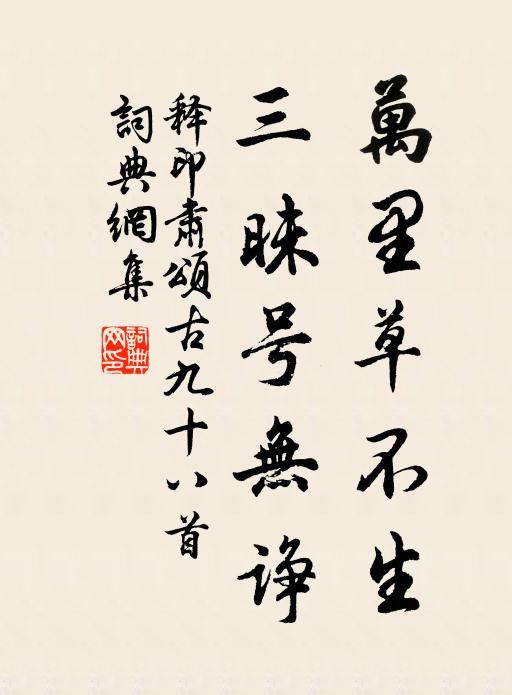 萬里草不生
三昧号無諍
释印肃頌古九十八首
詞典網集
詞典網印